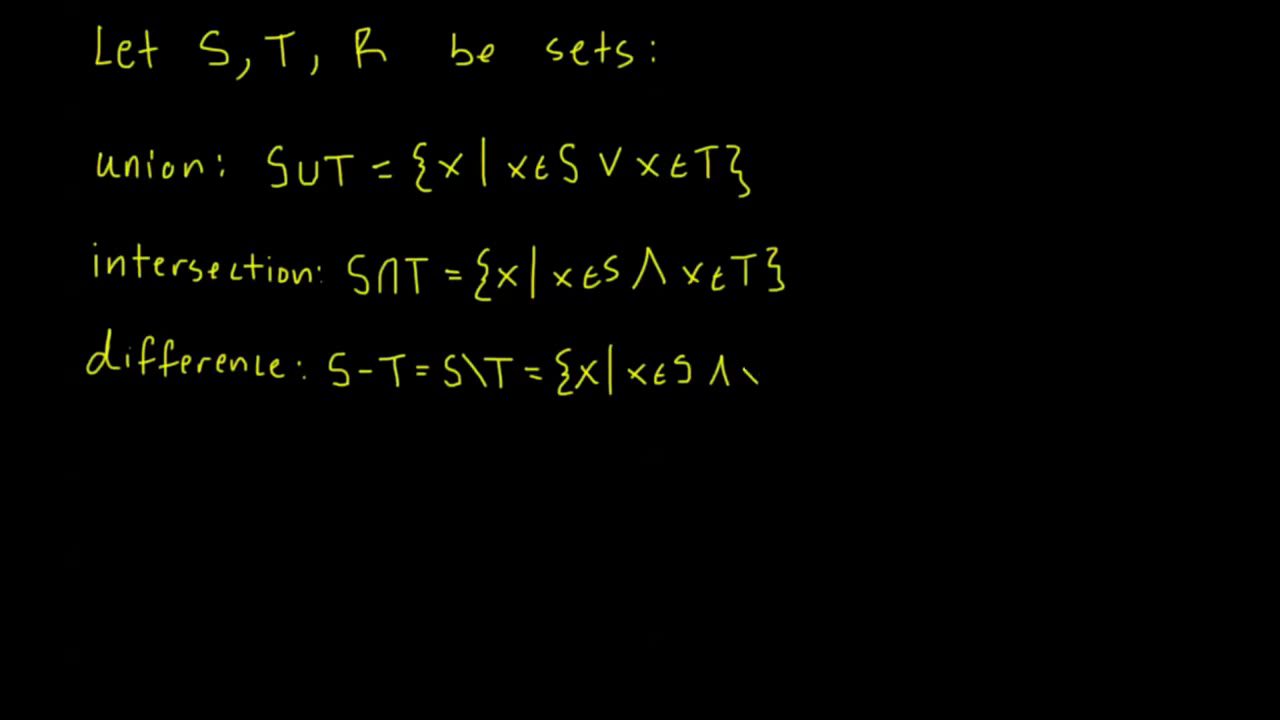 Let S, T, R be sets:
union: S∪T = {x | x∈S ∨ x∈T}
intersection: S∩T = {x | x∈S ∧ x∈T}
difference: S-T = S\T = {x | x∈S ∧ \